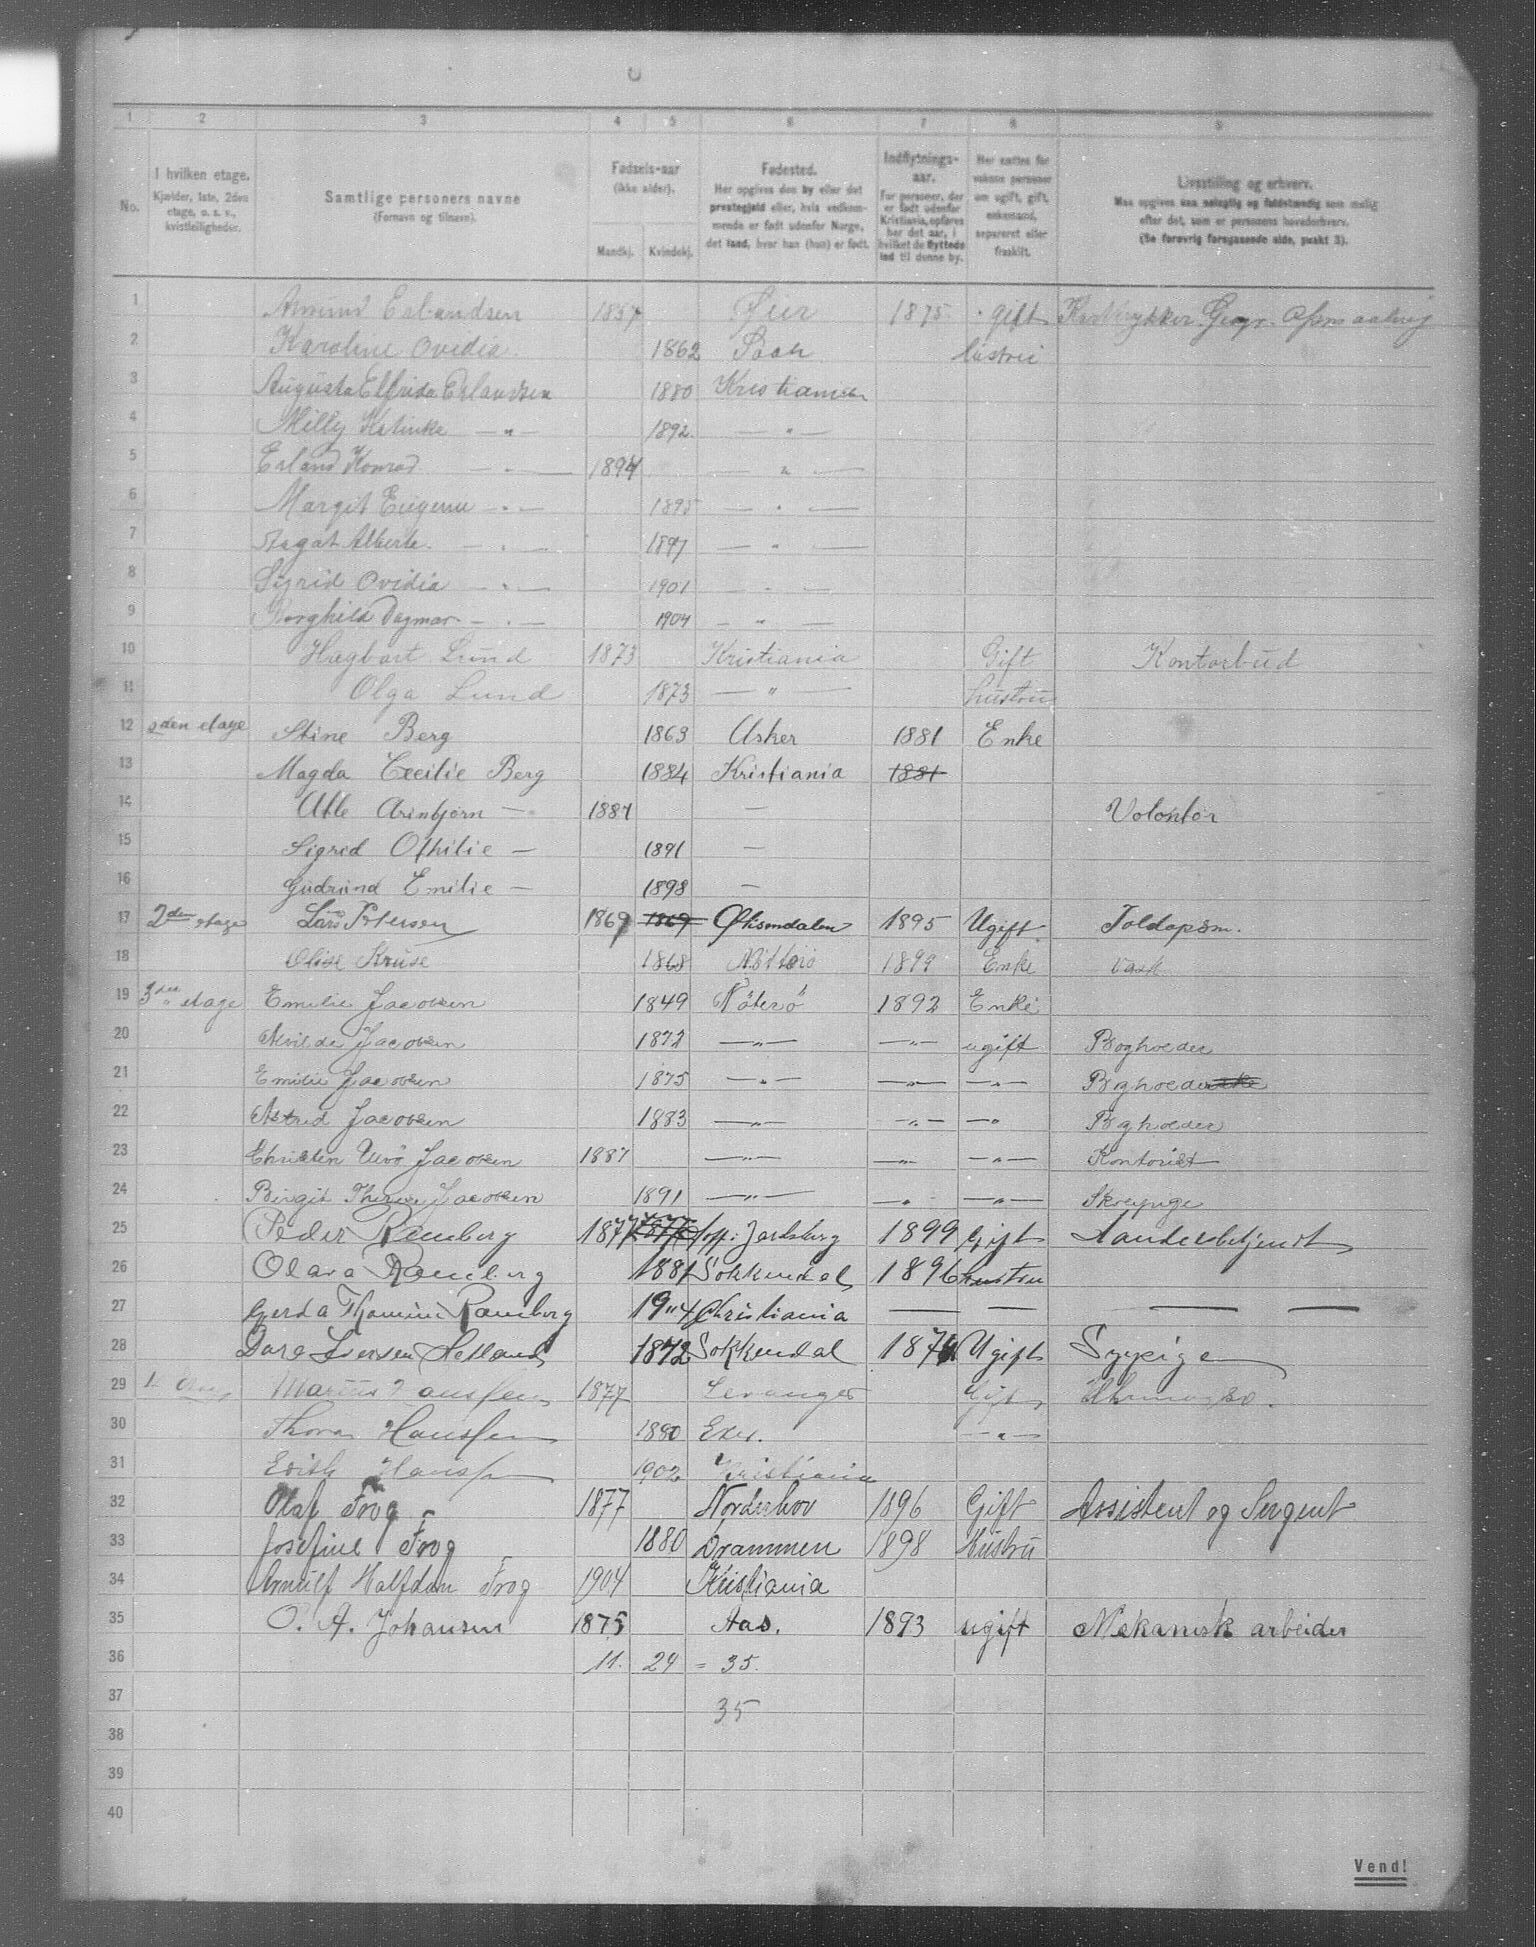 1 2 3 4 5 6 7 8 9
No.
I hvilken etage.
Kjælder, 1ste, 2den
etage, o. s. v.,
kvistleiligheder.
Samtlige personers navne
(Fornavn og tilnavn).
Fødsels-aar
(ikke alder).
Mandkj. Kvindekj.
Fødested.
Her opgives den by eller det
prestegjeld eller, hvis vedkom-
mende er født udenfor Norge,
det land, hvor han (hun) er født.
Indflytnings-
aar.
For personer, der
er født udenfor
Kristiania, opføres
her det aar, i
hvilket de flyttede
ind til denne by.
Her sættes for
voksne personer
om ugift, gift,
enkemand,
separeret eller
fraskilt.
Livsstilling og erhverv.
Maa opgives saa nøiagtig og fuldstændig som mulig
efter det, som er personens hovederhverv.
(Se forøvrig foregaaende side, punkt 3).
1 Amund Erlandsen 1857 Øier 1875 gift
2 Karoline Ovedia 1862 hustru
3 Augusta Elfrida Erlandsen 1880 Kristiania
4 Milly Katinka — " — 1892 — " —
5 Erland Konrad — " — 1894 — " —
6 Margit Eugenie — " — 1895 — " —
7 Aagot Alberte — " — 1897 — " —
8 Sigrid Ovidia — " — 1901 — " —
9 Borghild Dagmar — " — 1904 — " —
10 Hagbart Lund 1873 Kristiania Gift Kontorbud
11 Olga Lund 1873 — " — hustru
12 2den etage Stine Berg 1863 Asker 1881 Enke
13 Magda Cecilie Berg 1884 Kristiania 1881
14 Atle Arinbjørn — 1887 — Volontør
15 Sigrid Othilie — 1891 —
16 Gudrund Emilie — 1898 —
17 2den etage Lars Petersen 1869 1869 Øksendalen 1895 Ugift Toldopsm.
18 Olise Kruse 1868 Nøtterø 1899 Enke Vask
19 3die etage Emilie Jacobsen 1849 Nøterø 1892 Enke
20 Alvilde Jacobsen 1872 — " — — " — ugift Boghoeder
21 Emilie Jacobsen 1875 — " — — " — — " — Boghoederske
22 Astrid Jacobsen 1883 — " — — " — — " Boghoeder
23 Christen Uvo Jacobsen 1887 — " — — " — — " — Kontorist
24 Birgit Therese Jacobsen 1891 — " — — " — — " — Skrepige
25 Peder Ramberg 1877 1877 Hoff: Jarlsberg 1899 Gift Handelsbetjendt
26 Olava Ramberg 1881 Sokkendal 1896 hustru
27 Gerda Thomine Ramberg 19"4 Christiania — — — —
28 Dora Iversen Hetland 1872 Sokkendal Ugift Sypige
29 Marius Hanssen 1877 Levanger Gift
30 Thora Hanssen 1880 — " —
31 Edith Hanssen 1902 Kristiania
32 Olaf Frog 1877 Norderhov 1896 Gift Assistent og Sergent
33 Josefine Frog 1880 Drammen 1898 Hustru
34 Arnulf Halfdan Frog 1904 Kristiania
35 O. A. Johansen 1875 Aas. 1893 ugift Mekanisk arbeider
36 11. 24 = 35.
37 35
38
39
40
Vend!